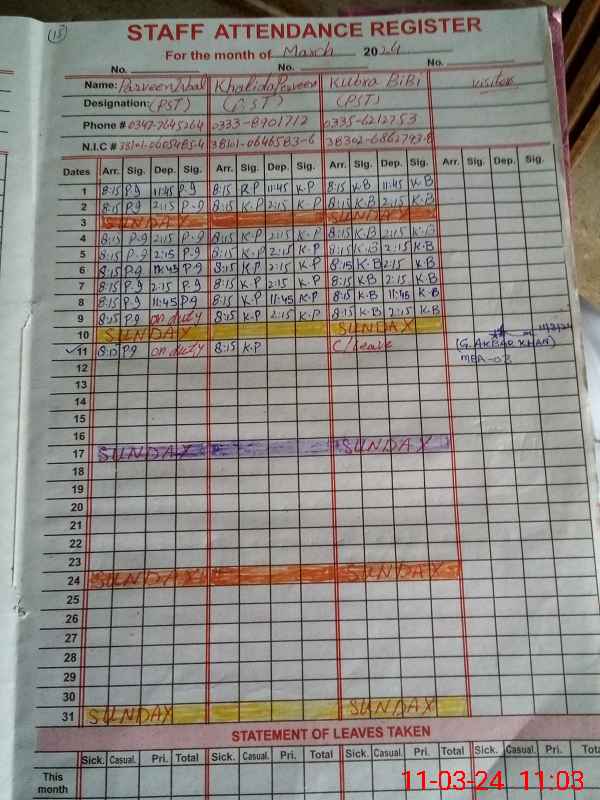 (15)
STAFF ATTENDANCE REGISTER
For the month of March 2024
No. No. No.
Name: Parveen Iqbal Khalida Parveen Kubra BiBi visitor
Designation: (PST) (PST) (PST)
Phone # 0347-7645264 0333-8901712 0335-6212753
N.I.C # 38101-0646583-6 38302-6862793-8
Dates Arr. Sig. Dep. Sig. Arr. Sig. Dep. Sig. Arr. Sig. Dep. Sig. Arr. Sig. Dep. Sig.
1 8:15 P.g 11:45 P.g 8:15 K.P 11:45 K.P 8:15 K.B 11:45 K.B
2 8:15 P.g 2:15 P.g 8:15 K.P 2:15 K.P 8:15 K.B 2:15 K.B
3 SUNDAX SUNDAX
4 8:15 P.g 2:15 P.g 8:15 K.P 2:15 K.P 8:15 K.B 2:15 K.B
5 8:15 P.g 2:15 P.g 8:15 K.P 2:15 K.P 8:15 K.B 2:15 K.B
6 8:15 P.g 11:45 P.g 8:15 K.P 2:15 K.P 8:15 K.B 2:15 K.B
7 8:15 P.g 2:15 P.g 8:15 K.P 2:15 K.P 8:15 K.B 2:15 K.B
8 8:15 P.g 11:45 P.g 8:15 K.P 11:45 K.P 8:15 K.B 11:45 K.B
9 8:15 P.g on duty 8:15 K.P 2:15 K.P 8:15 K.B 2:15 K.B
10 SUNDAX SUNDAX
11 8:15 P.g on duty 8:15 K.P C/Leave
(G. AKBAR KHAN)
MEA-03
12
13
14
15
16
17 SUNDAX SUNDAX
18
19
20
21
22
23
24 SUNDAX SUNDAX
25
26
27
28
29
30
31 SUNDAX SUNDAX
STATEMENT OF LEAVES TAKEN
Sick. Casual. Pri. Total Sick. Casual. Pri. Total Sick. Casual. Pri. Total Sick. Casual. Pri.
This month
11-03-24 11:03